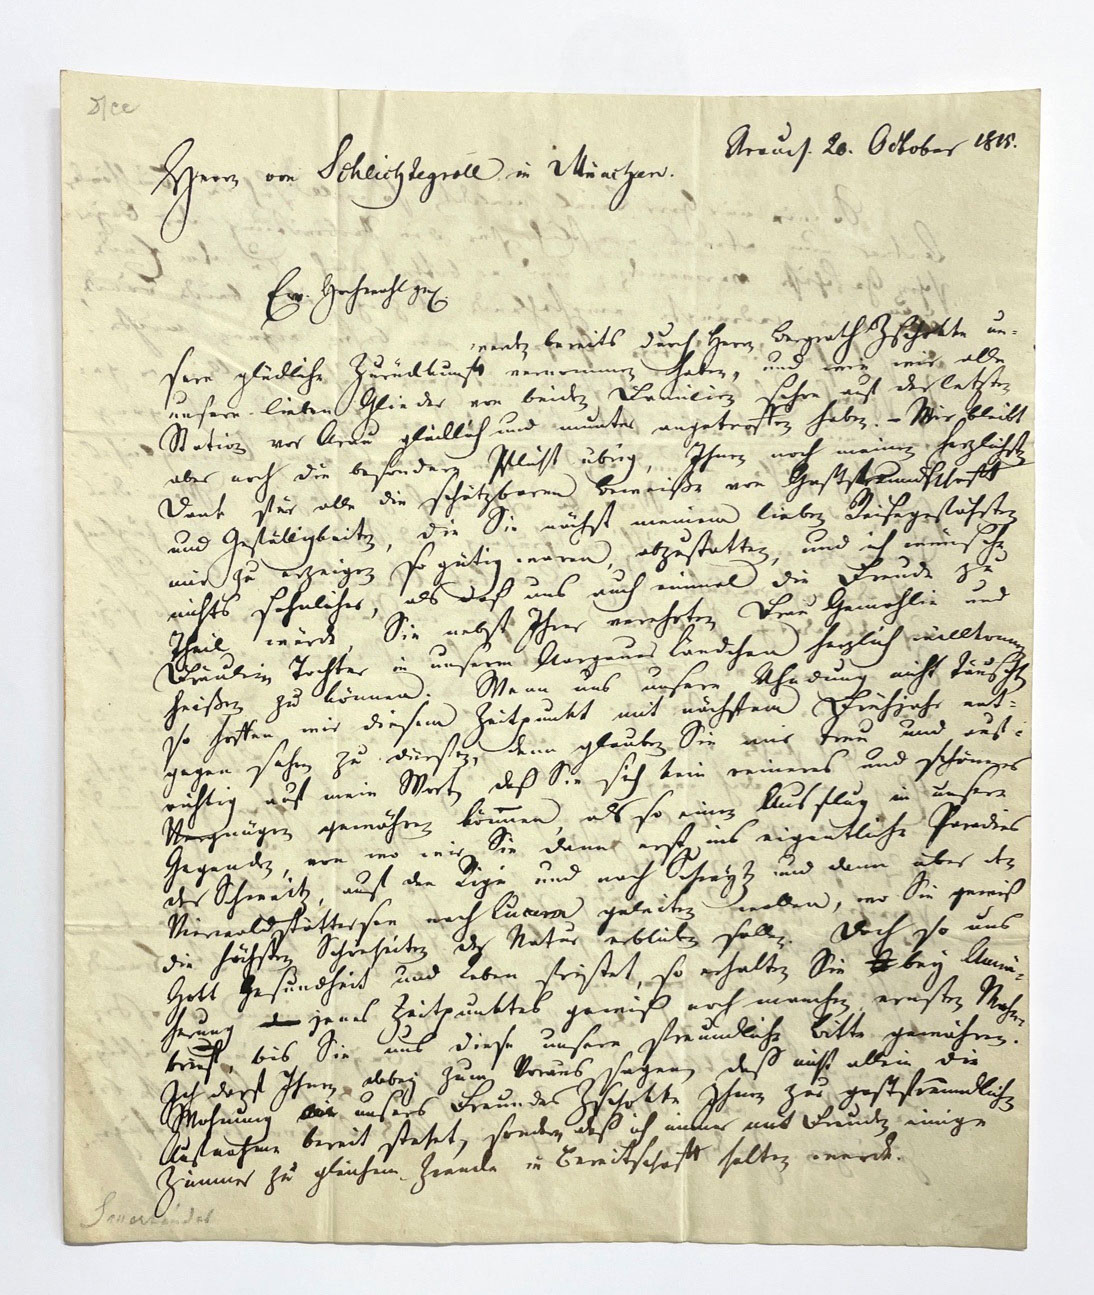 Arau d. 20. October 1815.
Herrn von Schlichtegroll in München.
Ew. Hochwohlgeb.
werden bereits durch Herrn Bergrath Zschokke un-
sere glückliche Zurückkunft vernommen haben, und wie wir alle
unsere lieben Glieder von beiden Familien schon auf der letzten
Station vor Arau glücklich und munter angetroffen haben. – Mir bleibt
aber noch die besondere Pflicht übrig, Ihnen noch meinen herzlichsten
Dank für alle die schätzbaren Beweiße von Gastfreundschaft
und Gefälligkeiten, die Sie nächst meinem lieben Reisegefährten
mir zu erzeigen so gütig waren, abzustatten, und ich wünsche
nichts sehnlicher, als daß uns auch einmal die Freude zu
Theil würde, Sie nebst Ihrer verehrten Frau Gemahlin und
Fräulein Tochter in unserm Aargauer Ländchen herzlich willkomm
heißen zu können. Wenn uns unsere Ahndung nicht täuscht
so hoffen wir diesem Zeitpunkt mit nächstem Frühjahr ent-
gegen sehen zu dürfen, denn glauben Sie mir treu und auf-
richtig auf mein Wort, daß Sie sich kein reineres und schöneres
Vergnügen gewähren können, als so einen Ausflug in unsere
Gegenden, von wo wir Sie dann erst ins eigentliche Paradies
der Schweitz, auf den Rigi und nach Schwytz und dann über den
Vierwaldstättersee nach Lucern geleiten wollen, wo Sie gewiß
die höchsten Schönheiten der Natur erblicken sollen. Doch so uns
Gott Gesundheit und Leben fristet, so erhalten Sie bey Annä-
herung jenes Zeitpunktes gewiß noch manchen ernsten Mahn-
brief, bis Sie uns diese unsere freundliche Bitte gewähren.
Ich darf Ihnen dabey zum Voraus sagen, daß nicht allein die
Wohnung unsers Freundes Zschokke Ihnen zur gastfreundlichen
Aufnahme bereit stehet, sondern daß ich immer mit Freuden einige
Zimmer zu gleichem Zwecke in Bereitschaft halten werde.